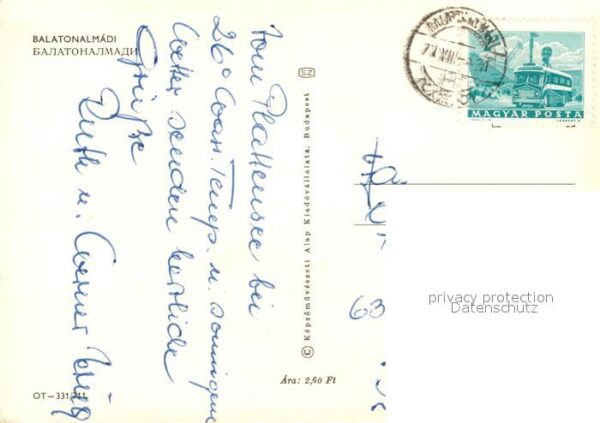 BALATONALMÁDI
БАЛАТОНАЛМАДИ
Vom Plattensee bei
26° Wass. Temp. u. sonnigem
Wetter senden herzliche
Grüße
Ruth u. Werner
© Képzőművészeti Alap Kiadóvállalata, Budapest
SZ
MAGYAR POSTA
63
privacy protection
Datenschutz
Ára: 2,60 Ft
OT–331/711